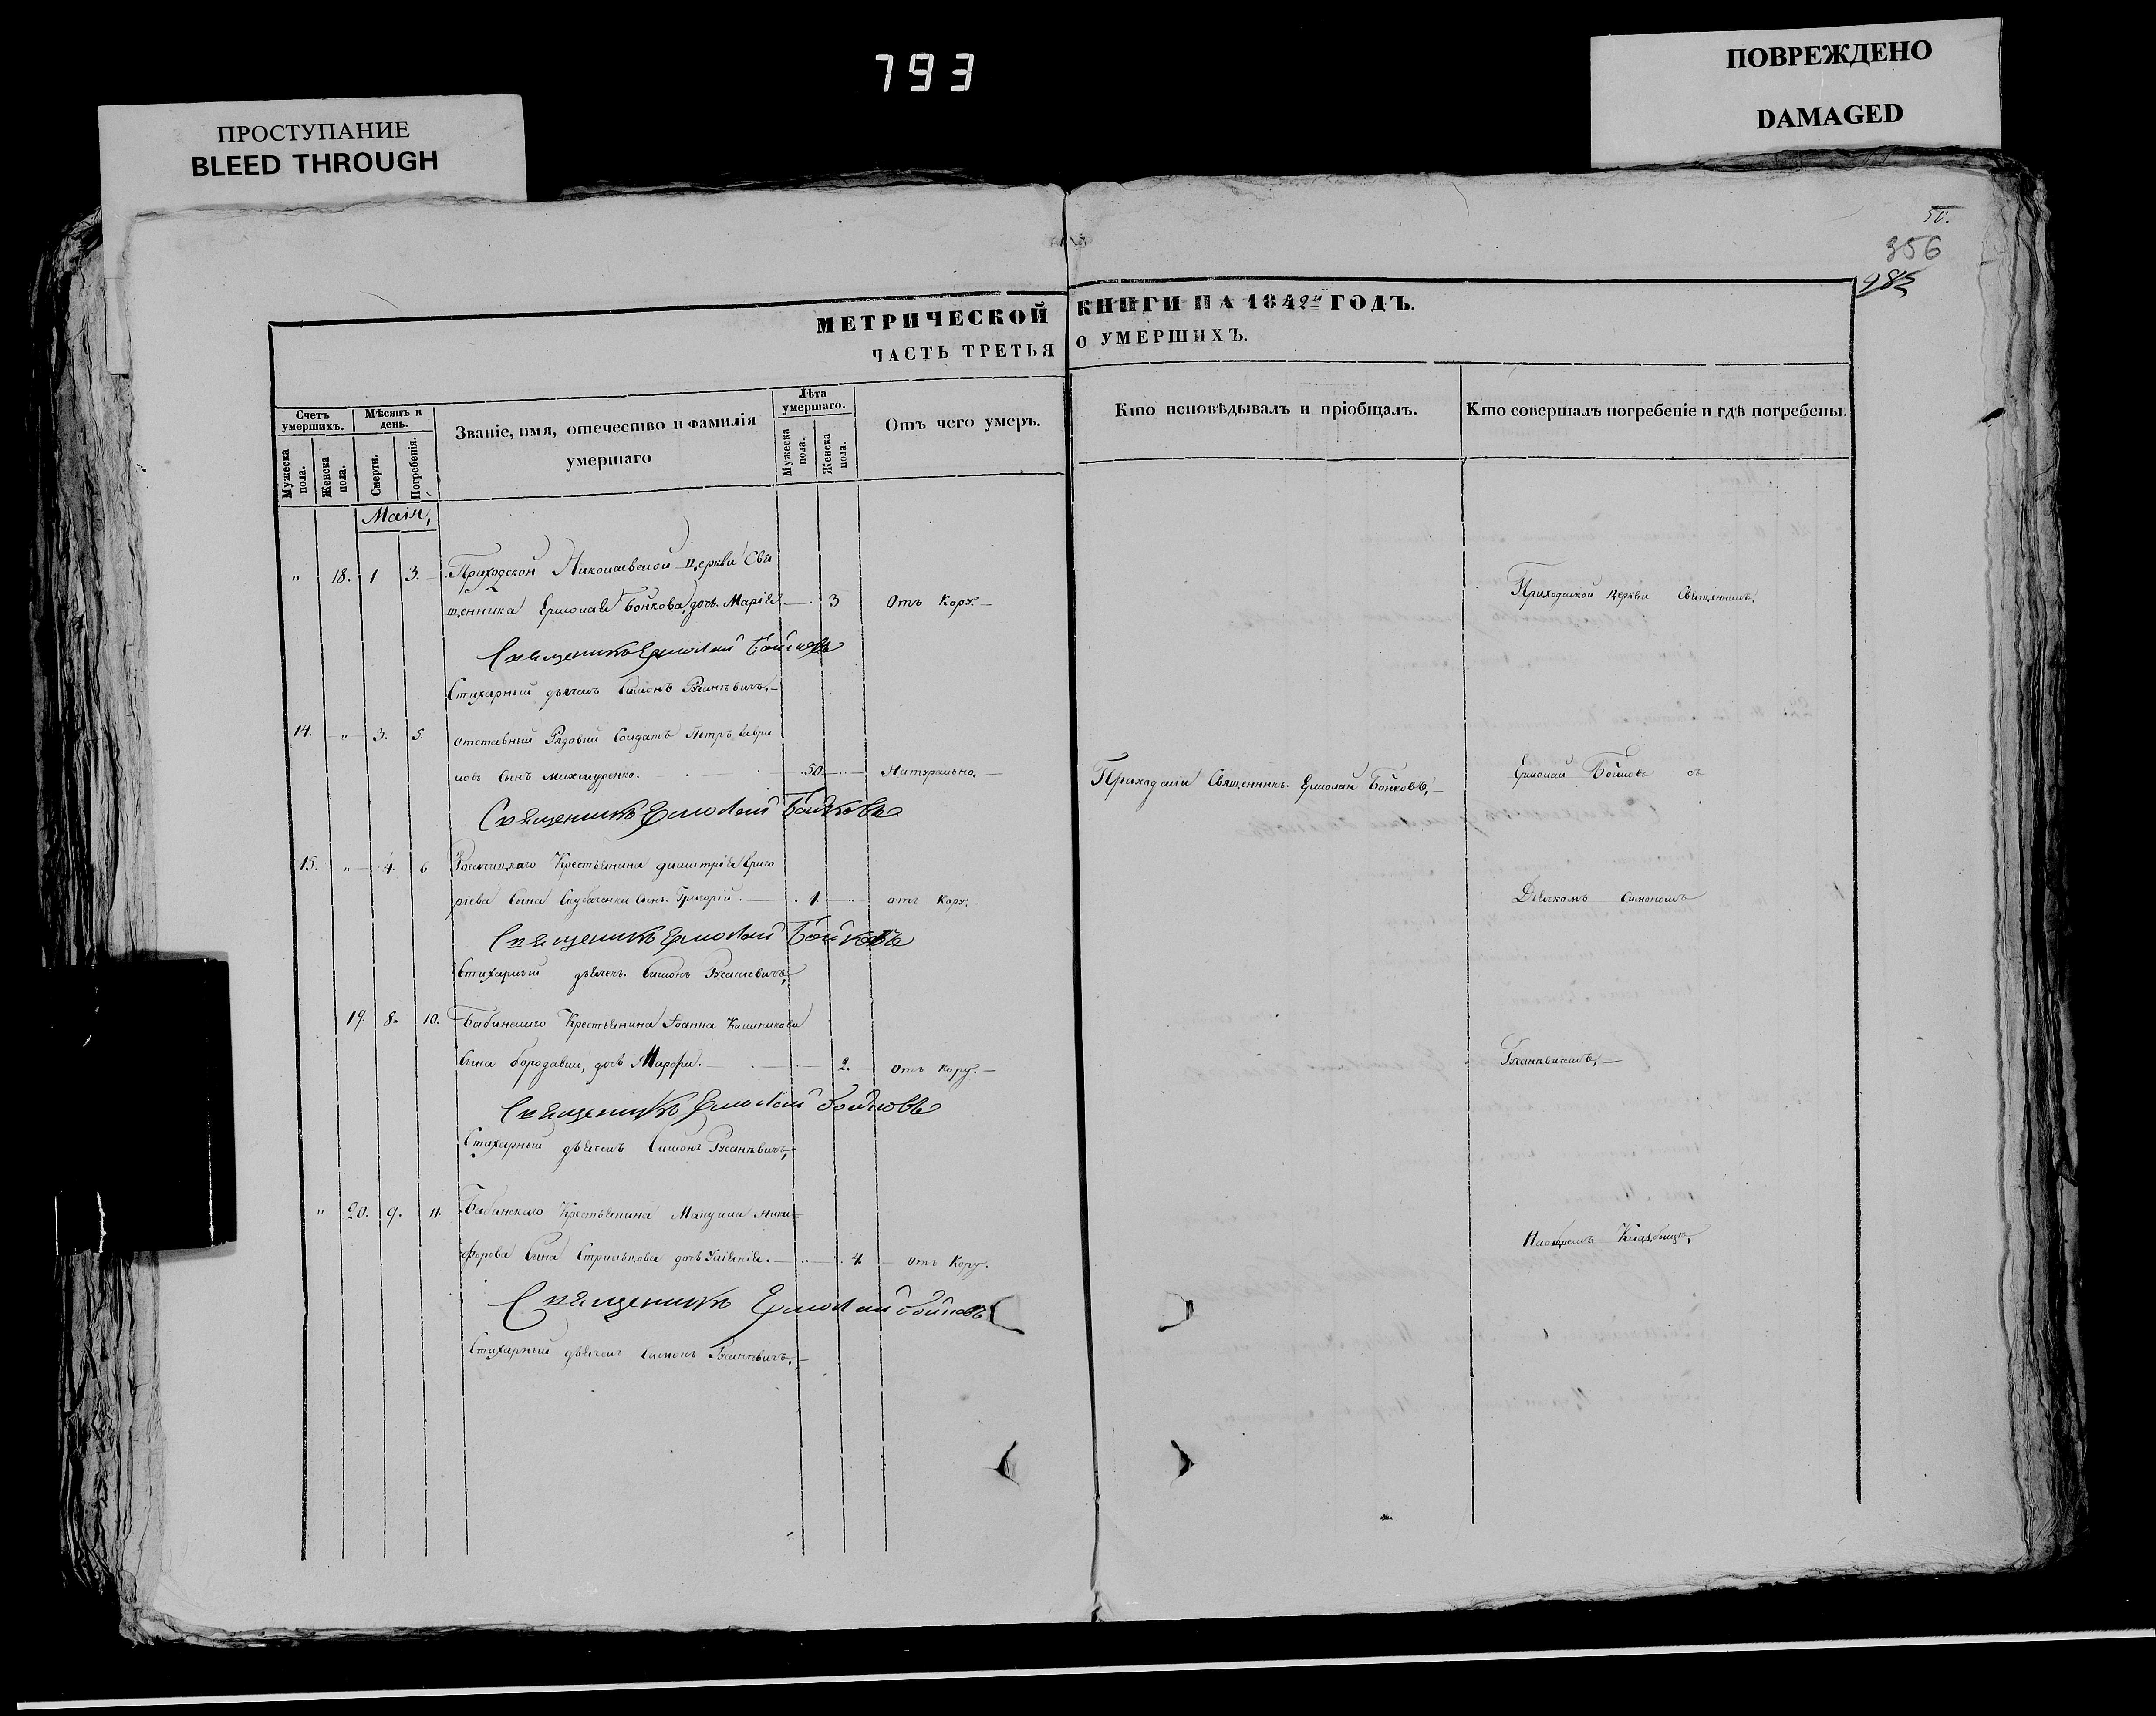 793
ПРОСТУПАНИЕ
BLEED THROUGH
ПОВРЕЖДЕНО
DAMAGED
356
МЕТРИЧЕСКОЙ КНИГИ НА 1842й ГОДЪ.
ЧАСТЬ ТРЕТЬЯ О УМЕРШИХЪ.
Счетъ умершихъ.
Мужеска пола.
Женска пола.
Мѣсяцъ и день.
Смерти.
Погребенія.
Званіе, имя, отечество и фамилія умершаго
Лѣта умершаго.
Мужеска пола.
Женска пола.
Отъ чего умеръ.
Кто исповѣдывалъ и пріобщалъ.
Кто совершалъ погребеніе и гдѣ погребены.
Маія,
" 18. 1 3. Приходской Николаевской церкви Свя
щенника Ермолая Бойкова дочь Марія 3 Отъ Кору.
Священникъ Ермолай Бойковъ
Стихарный дьячокъ Симонъ
14. " 3. 5. Отставный Рядовый Солдатъ Петръ Гаври
ловъ Сынъ Михмуренко. 50. Натурально.
Священникъ Ермолай Бойковъ
15. " 4. 6 Крестьянина Димитрія Григо
ріева Сына сынъ Григорій. 1. отъ Кору.
Священникъ Ермолай Бойковъ
Стихарный дьячокъ Симонъ
19. 8. 10. Бабинскаго Крестьянина Іоанна
Сына Бородавки, дочь Марфа. 2. Отъ Кору.
Священникъ Ермолай Бойковъ
Стихарный дьячокъ Симонъ
" 20. 9. 11. Бабинскаго Крестьянина Мануила Ники=
форова Сына дочь 4. Отъ Кору.
Священникъ Ермолай Бойковъ
Стихарный дьячокъ Симонъ
Приходскій Священникъ Ермолай Бойковъ,
Приходской церкви Священникъ
Ермолай Бойковъ съ
Дьячкомъ Симономъ
На общемъ Кладбищѣ,